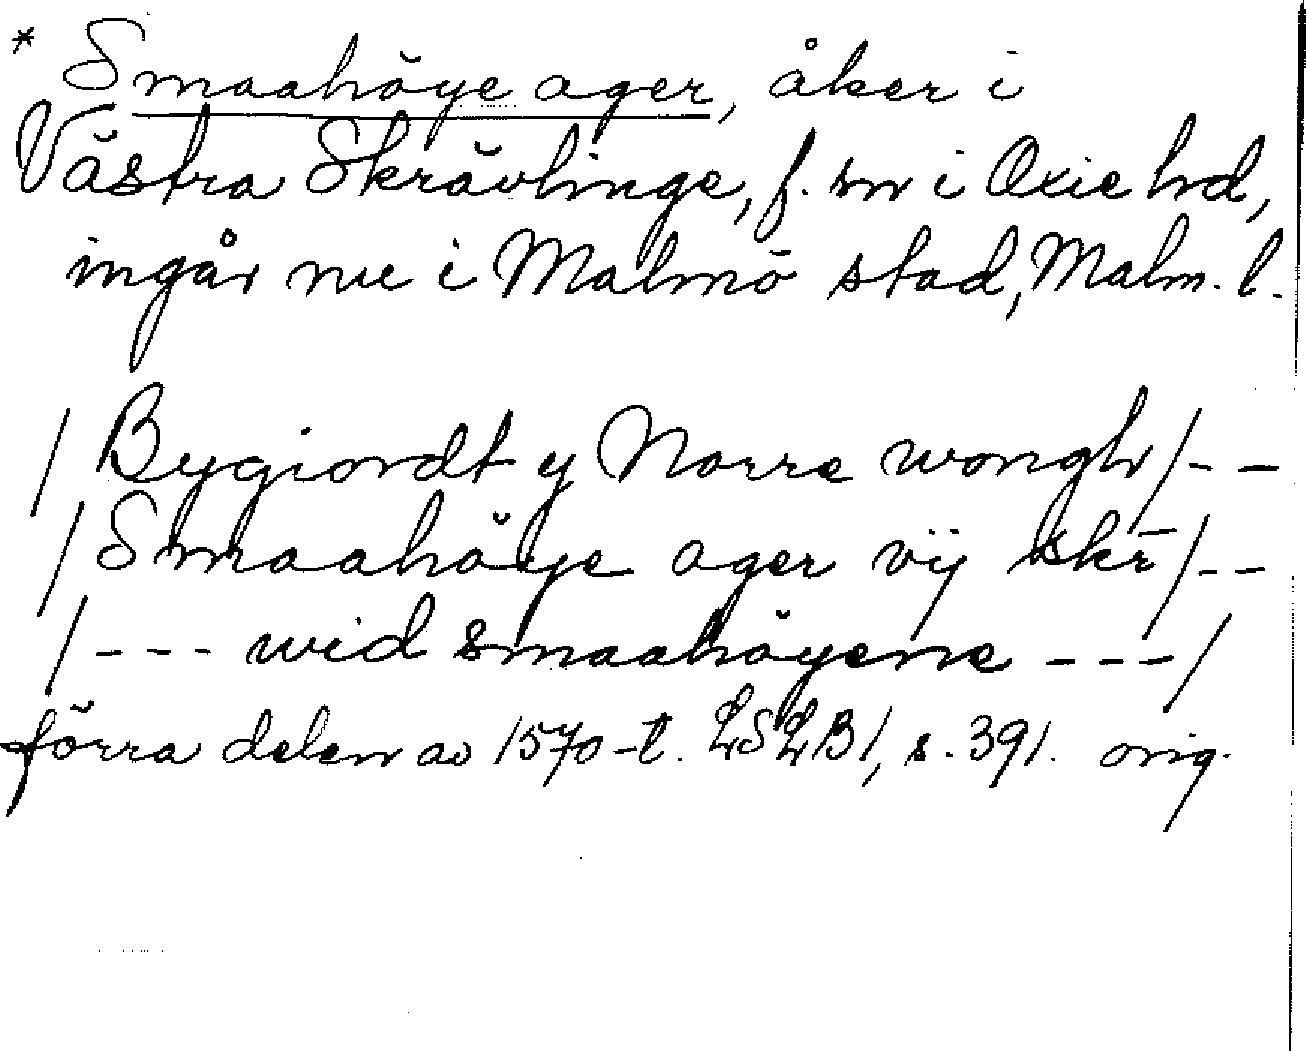 * Smaahöye ager, åker i
Västra Skrävlinge, f. sn i Oxie hd,
ingår nu i Malmö stad, Malm. l.
/ Bygiordt y Norre wongh /- -
/ Smaahöye ager vij skr̄ /- -
/ - - - wid smaahöyene - - - /
förra delen av 1570-t. LSLB1, s. 391. orig.